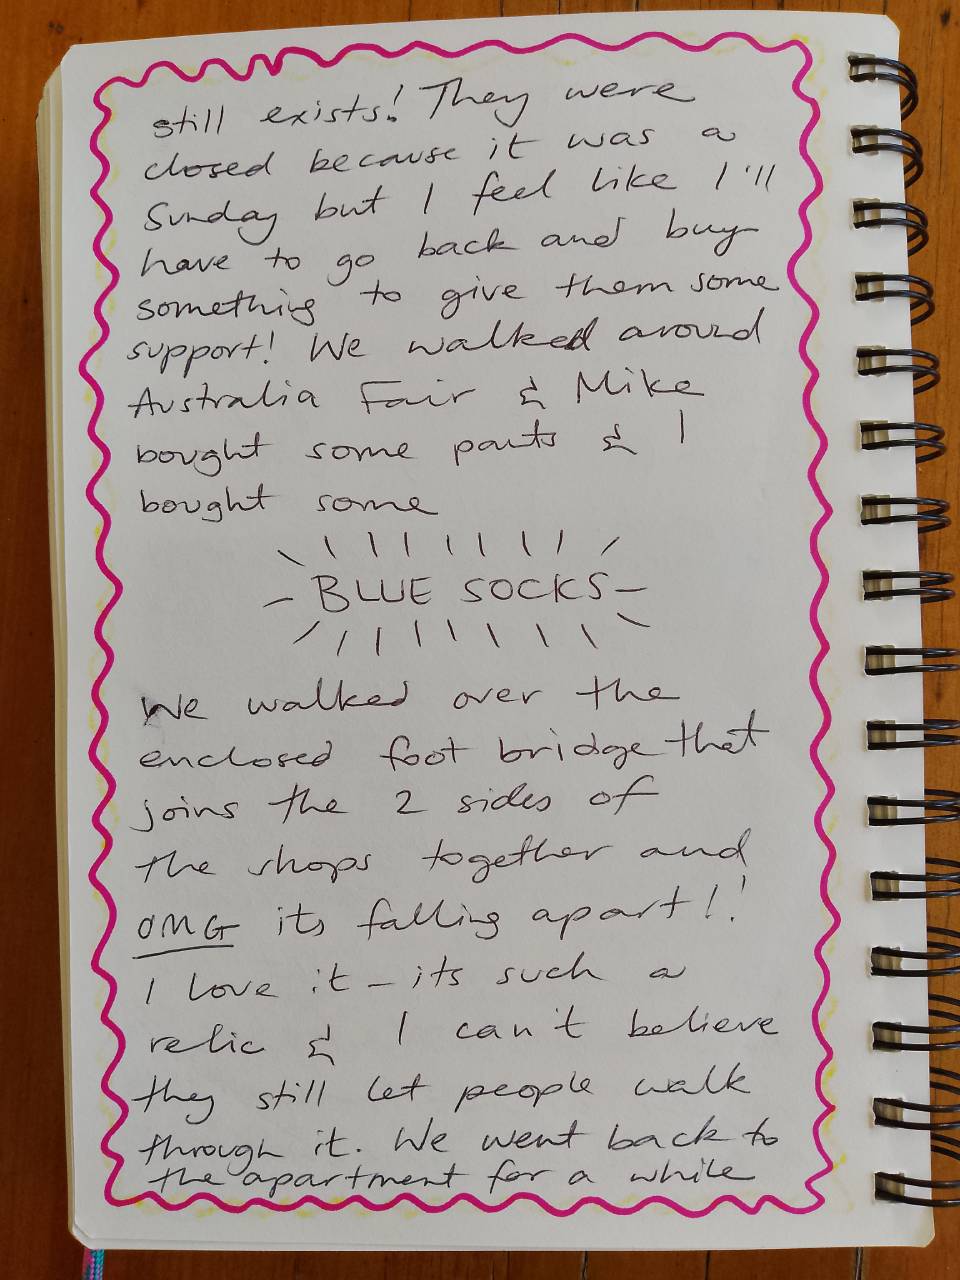 still exists! They were
closed because it was a
Sunday but I feel like I'll
have to go back and buy
something to give them some
support! We walked around
Australia Fair & Mike
bought some pants & I
bought some
BLUE SOCKS
We walked over the
enclosed foot bridge that
joins the 2 sides of
the shops together and
OMG its falling apart!!
I love it - its such a
relic & I can't believe
they still let people walk
through it. We went back to
the apartment for a while